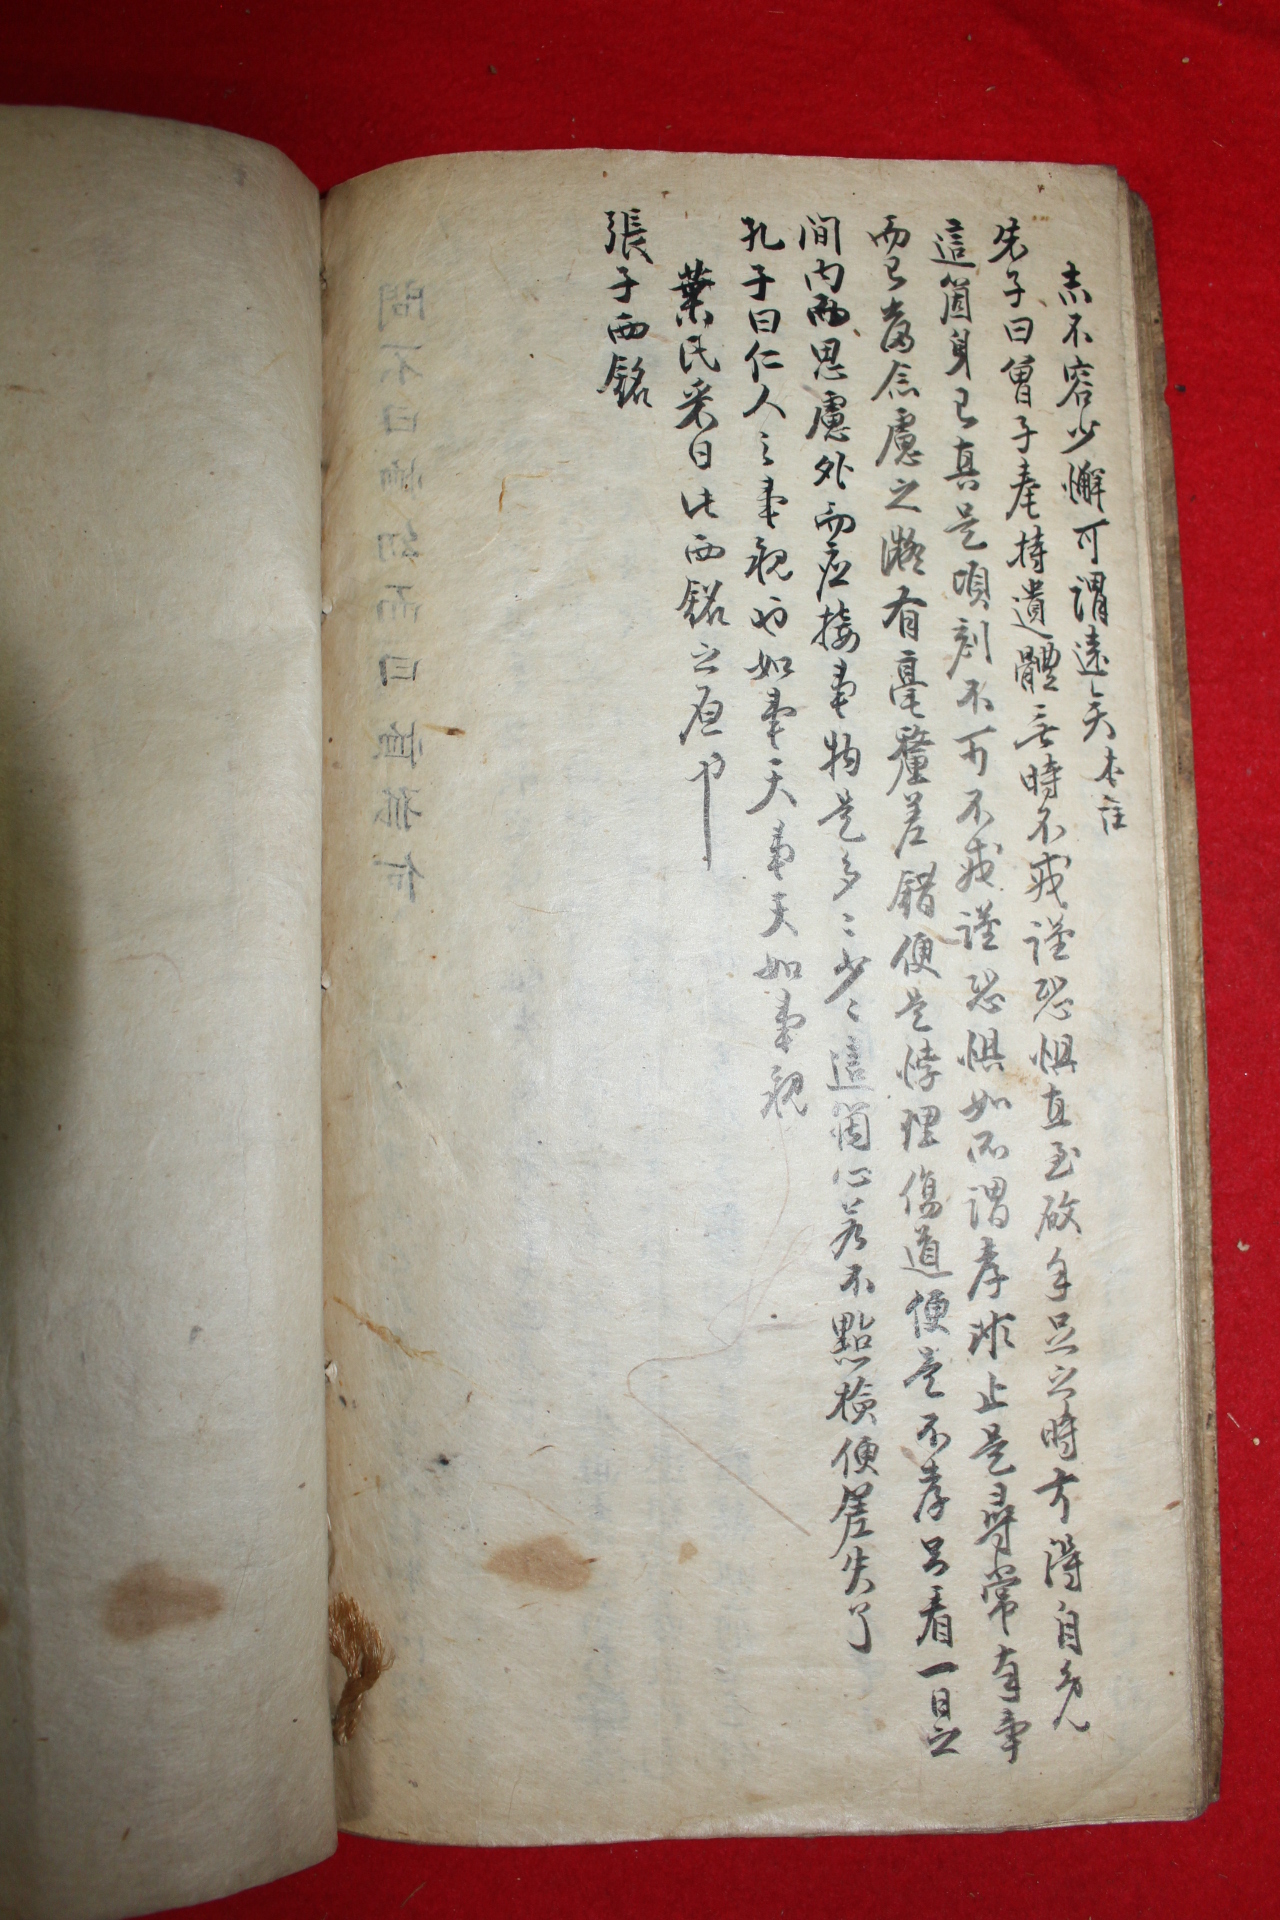 志不容少懈可謂遠矣本註
朱子曰曾子奉持遺體無時不戒謹恐懼直至啟手足之時方得自免
這箇身已真是頃刻不可不戒謹恐懼如所謂孝非止是尋常奉事
而已當念慮之微有毫釐差錯便是悖理傷道便是不孝只看一日之
間內而思慮外而應接事物是多〻少〻這箇心若不點檢便差失了
孔子曰仁人之事親也如事天事天如事親
葉氏采曰此西銘之原也
張子西銘